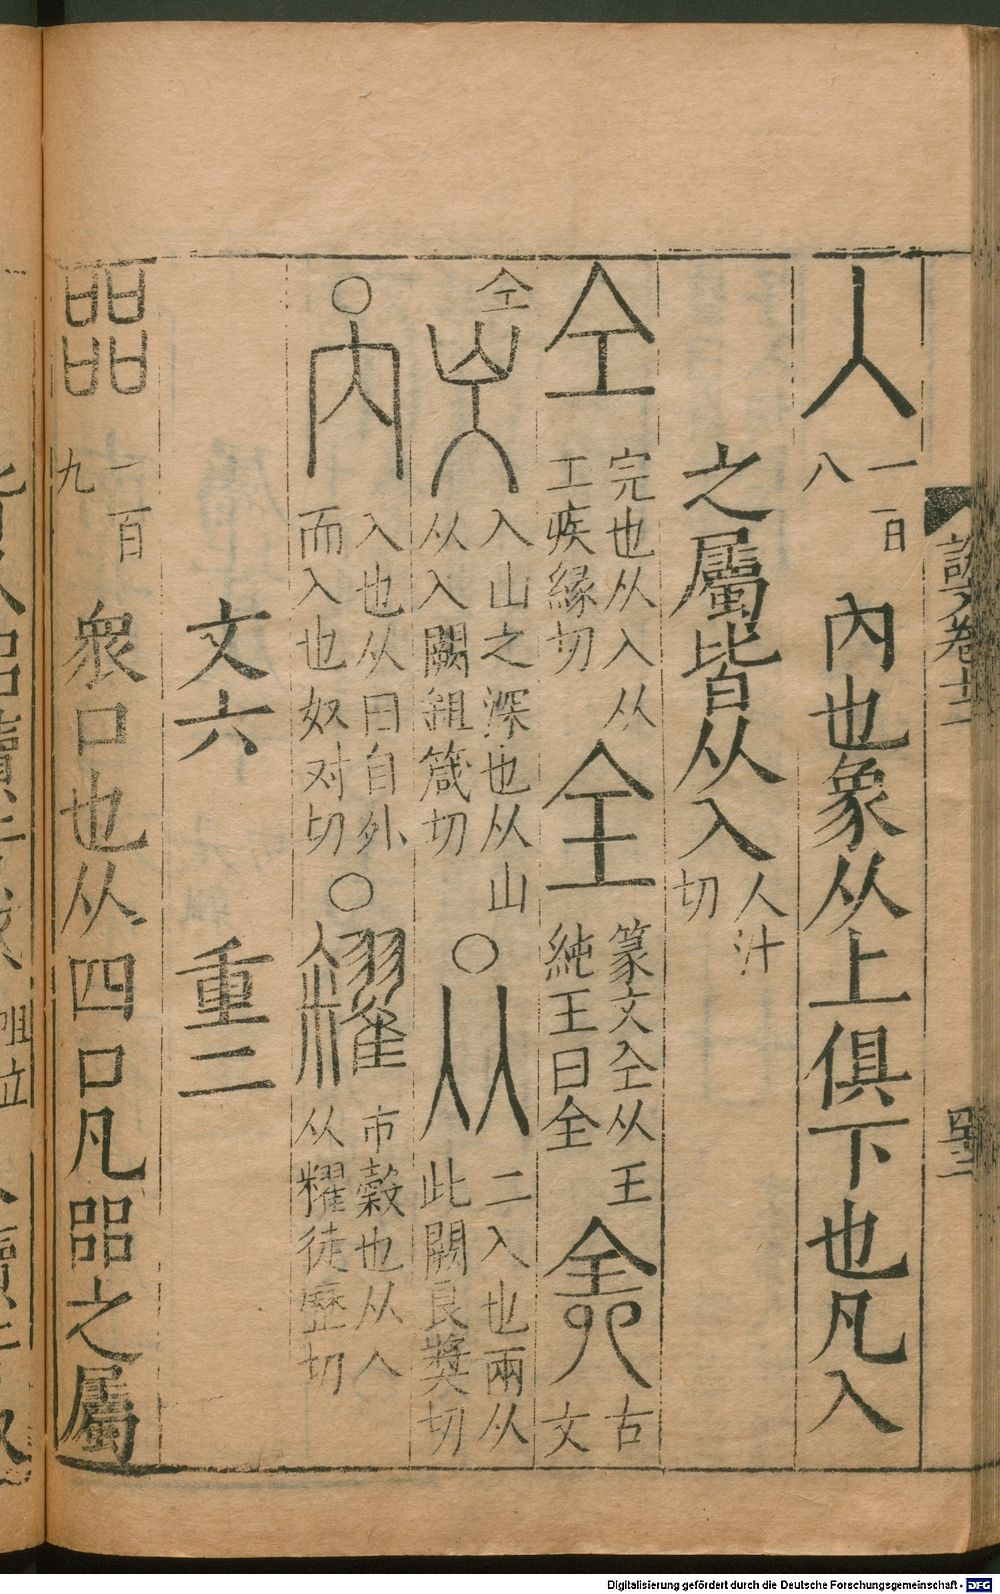 說文卷十二
入 一百一八 內也象从上俱下也凡入
之屬皆从入 人汁切
仝 完也从入从工疾緣切 全 篆文仝从王純王曰全 𠓴 古文
仝 入山之深也从山从入闕鉏箴切 ○ 从 二入也兩从此闕良奬切
○ 內 入也从冂自外而入也奴对切 ○ 糴 市穀也从入从糴徒歷切
文六 重二
㗊 一百九 衆口也从四口凡㗊之屬
Digitalisierung gefördert durch die Deutsche Forschungsgemeinschaft - DFG